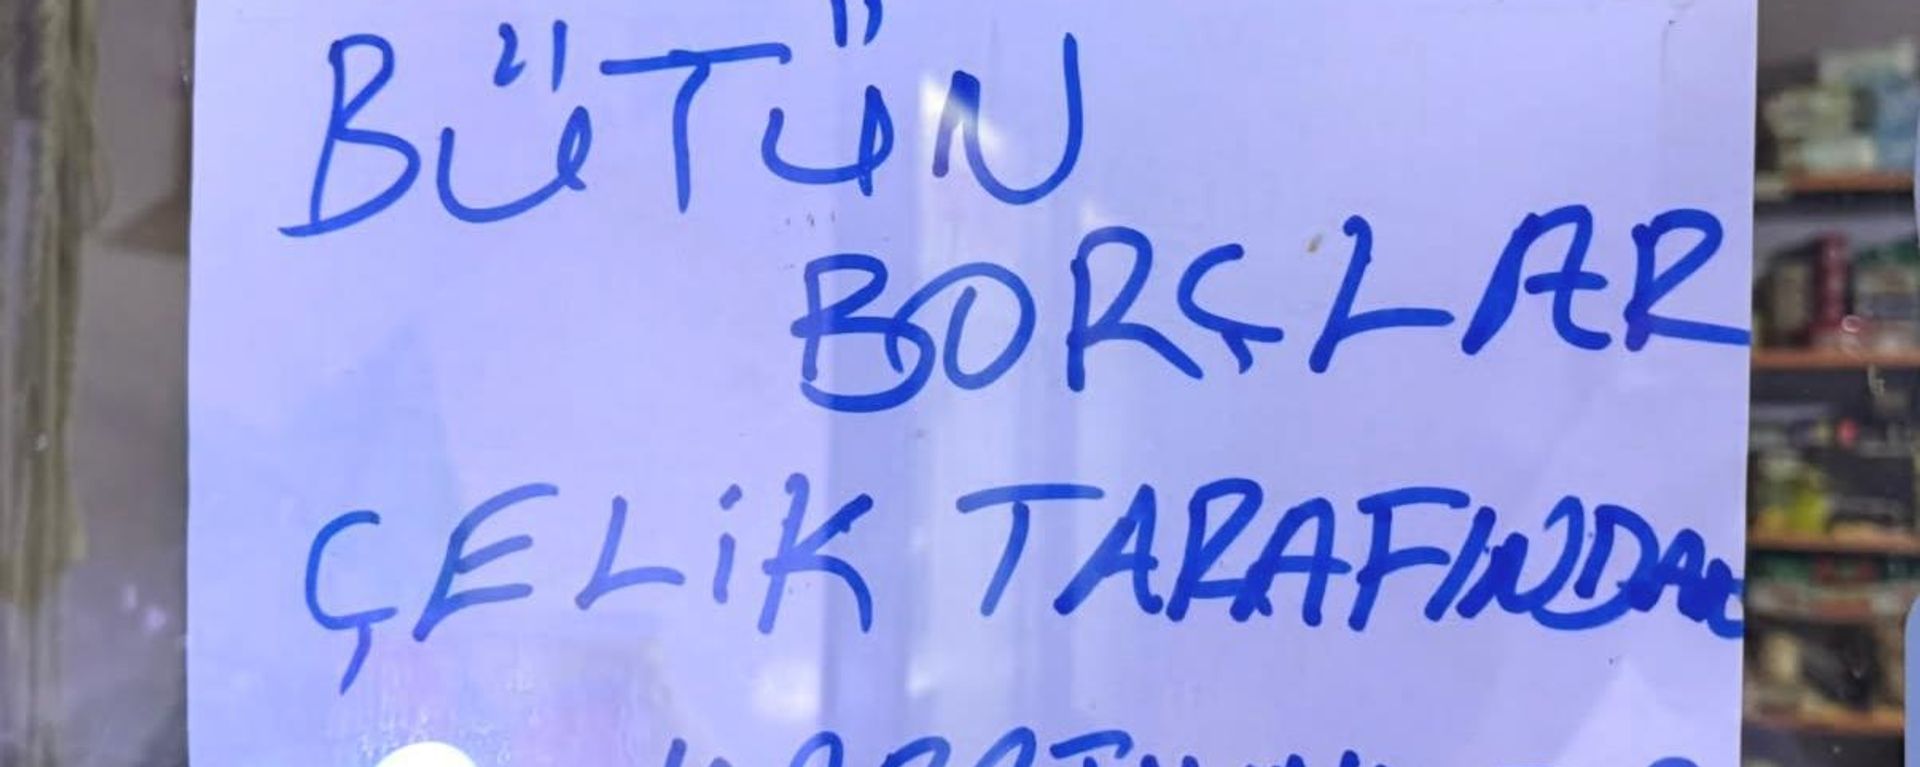 BÜTÜN
BORÇLAR
ÇELİK TARAFINDAN